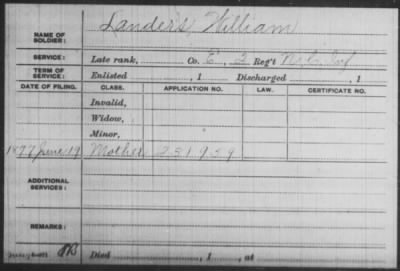 NAME OF SOLDIER: Landers, William
SERVICE: Late rank, Co. E, 2 Reg't N.C. Inf
TERM OF SERVICE: Enlisted , 1 Discharged , 1
DATE OF FILING. CLASS. APPLICATION NO. LAW. CERTIFICATE NO.
Invalid,
Widow,
Minor,
1877 June 19 Mother 231959
ADDITIONAL SERVICES:
REMARKS:
Died , 1 , at